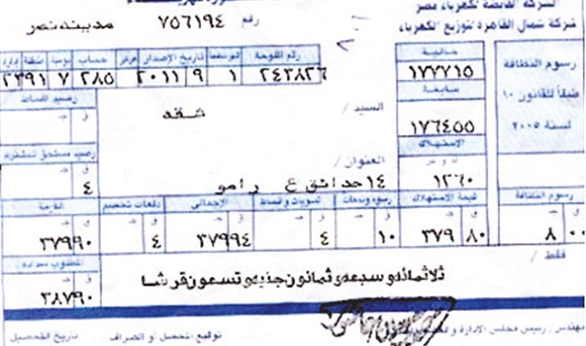 الشركة القابضة لكهرباء مصر
شركة شمال القاهرة لتوزيع الكهرباء
رقم ٧٥٦١٩٤ مدينة نصر
رسوم النظافة
طبقا للقانون ١٠
لسنة ٢٠٠٥
حالية
١٧٧٧١٥
سابقة
١٧٦٤٥٥
الاستهلاك
١٢٦٠
رقم اللوحة تاريخ الإصدار مركز حساب يومية منطقة إدارة
٢٤٢٨٢٦ ١ ٩ ٢٠١١ ٢٨٥ ٧ ٢٣٩١
السيد / شقه
العنوان /
١٤ حدائق ع رامو
رصيد مستحق
٤
رسوم النظافة قيمة الاستهلاك تسويات واقساط الإجمالى دفعات تخصم
٨ ٠٠ ٣٧٩ ٨٠ ١٠ ٤ ٣٧٩٩٤ ٤ ٣٧٩٩٠
فقط /
ثلاثمائه و سبعه و ثمانون جنيه و تسعون قرشا
المطلوب سداده
٣٨٧٩٠
مهندس / رئيس مجلس الادارة و
توقيع المحصل أو الصراف
تاريخ التحصيل